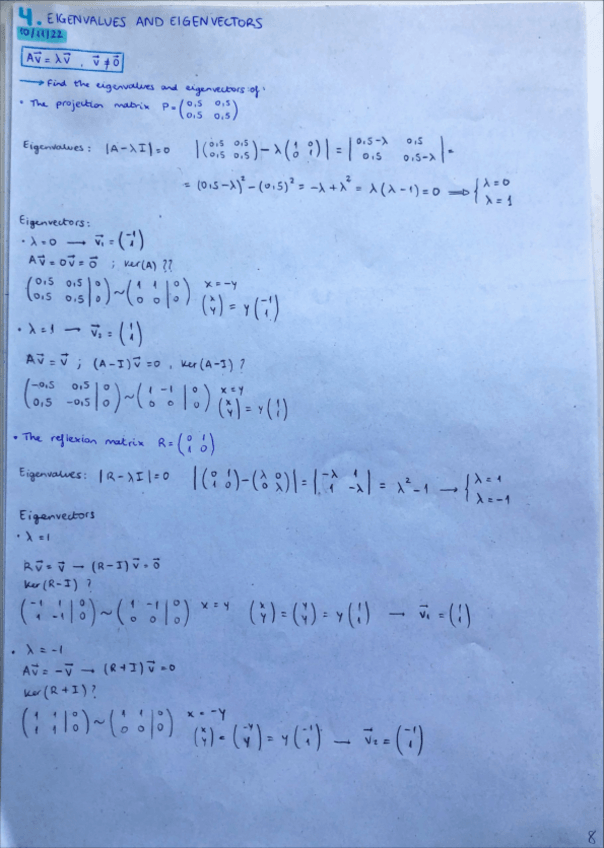 4. EIGENVALUES AND EIGENVECTORS
10/11/22
Av⃗ = λv⃗ , v⃗ ≠ 0⃗
→ Find the eigenvalues and eigenvectors of:
• The projection matrix P = (0,5 0,5; 0,5 0,5)
Eigenvalues: |A-λI| = 0 |(0,5 0,5; 0,5 0,5) - λ(1 0; 0 1)| = |0,5-λ 0,5; 0,5 0,5-λ| =
= (0,5-λ)² - (0,5)² = -λ+λ² = λ(λ-1) = 0 ⇒ {λ=0; λ=1
Eigenvectors:
• λ=0 → v⃗₁ = (-1; 1)
Av⃗ = 0v⃗ = 0⃗ ; Ker(A) ??
(0,5 0,5 | 0; 0,5 0,5 | 0) ~ (1 1 | 0; 0 0 | 0) x = -y (x; y) = y(-1; 1)
• λ=1 → v⃗₂ = (1; 1)
Av⃗ = v⃗ ; (A-I)v⃗ = 0 , Ker(A-I) ?
(-0,5 0,5 | 0; 0,5 -0,5 | 0) ~ (1 -1 | 0; 0 0 | 0) x = y (x; y) = y(1; 1)
• The reflexion matrix R = (0 1; 1 0)
Eigenvalues: |R-λI| = 0 |(0 1; 1 0) - (λ 0; 0 λ)| = |-λ 1; 1 -λ| = λ² - 1 → {λ=1; λ=-1
Eigenvectors
• λ=1
Rv⃗ = v⃗ → (R-I)v⃗ = 0⃗
Ker(R-I) ?
(-1 1 | 0; 1 -1 | 0) ~ (1 -1 | 0; 0 0 | 0) x = y (x; y) = (y; y) = y(1; 1) → v⃗₁ = (1; 1)
• λ = -1
Av⃗ = -v⃗ → (R+I)v⃗ = 0
Ker(R+I) ?
(1 1 | 0; 1 1 | 0) ~ (1 1 | 0; 0 0 | 0) x = -y (x; y) = (-y; y) = y(-1; 1) → v⃗₂ = (-1; 1)
8